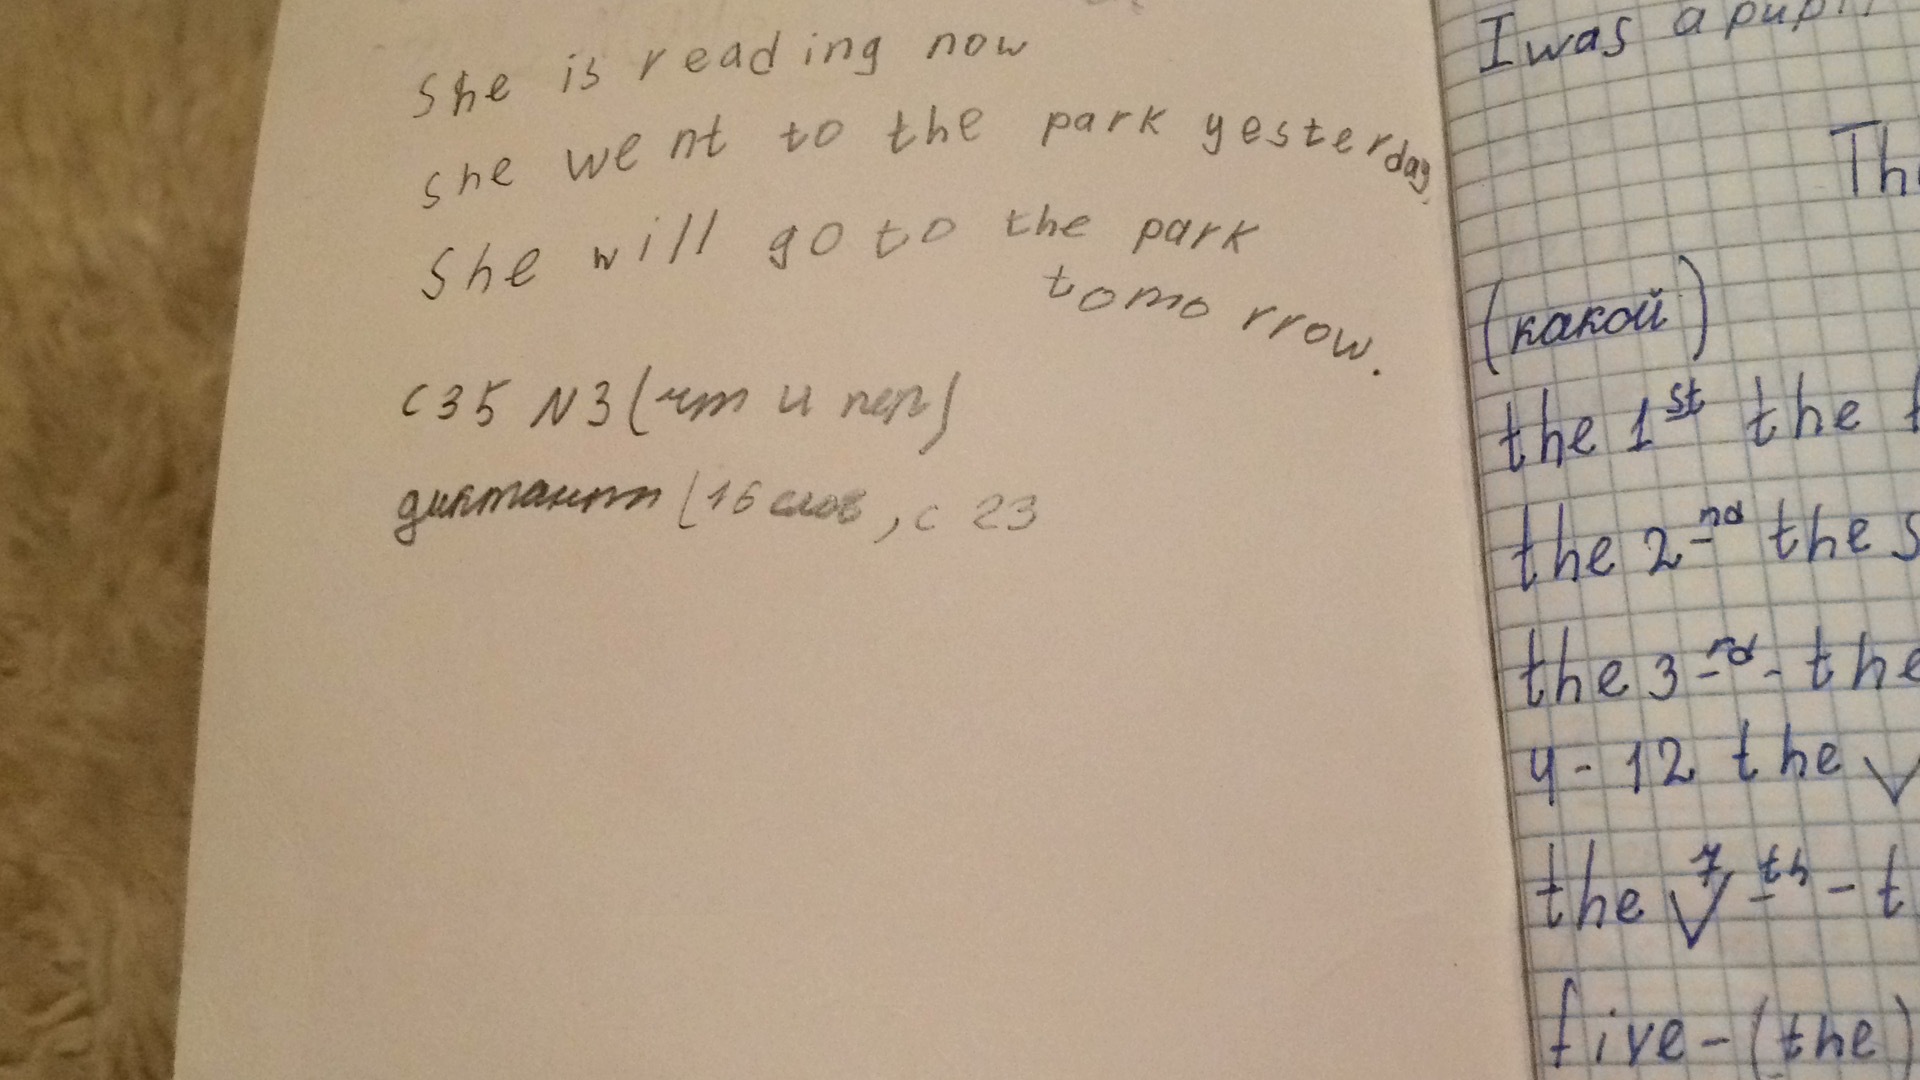 She is reading now
she went to the park yesterday
She will go to the park
tomorrow.
с 35 N3 (чт и пер)
диктант (16 слов, с 23
I was a
(какой)
the 1st the
the 2nd the
the 3rd - the
4 - 12 the
the 7th -
five - (the)